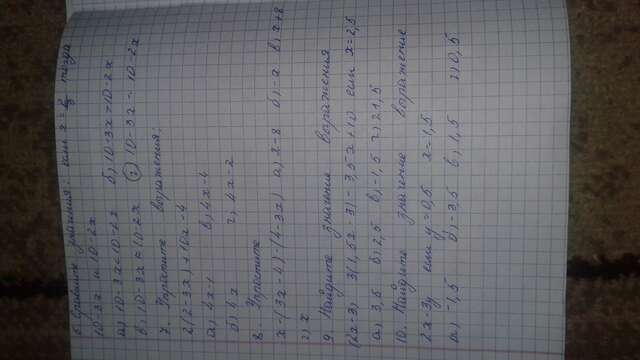 6. Сравните значения если x = 8 тогда
10-3x и 10-2x
а) 10-3x<10-2x б) 10-3x>10-2x
в) 10-3x=10-2x г) 10-3x - 10-2x
7. Упростите выражения:
2(2-3x)+10x-4
а) 4x+ в) 4x-4
б) 4x г) 4x-2
8. Упростите
x-(3x-4)-(4-3x) а) x-8 б) -x в) x+8
г) x
9 Найдите значения выражения
(2x-3) 3(1,5x-3)-3,5x+10 если x=2,5
а) 3,5 б) 2,5 в) -1,5 г) 21,5
10. Найдите значение выражение
2x-3y если y=0,5 x=-1,5
а) -1,5 б) -3,5 в) 1,5 г) 0,5